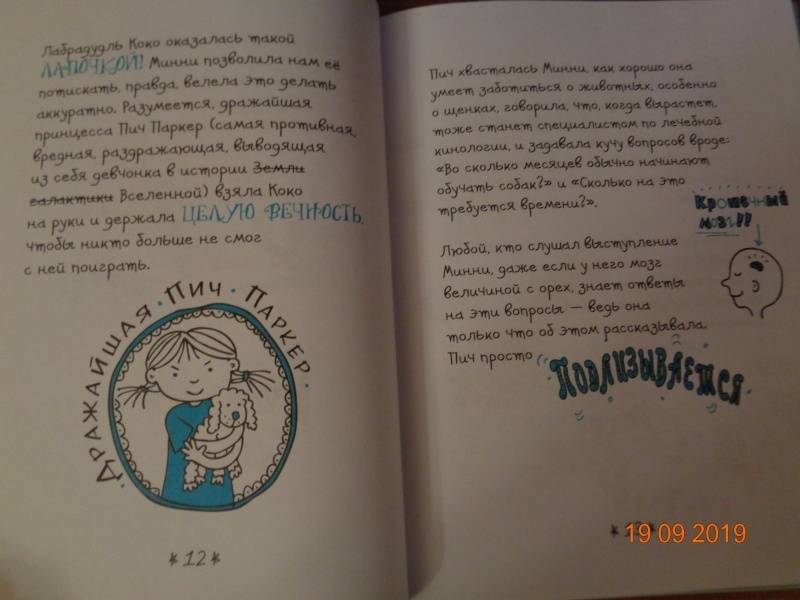 Лабрадудль Коко оказалась такой
ЛАПОЧКОЙ! Минни позволила нам её
потискать, правда, велела это делать
аккуратно. Разумеется, дражайшая
принцесса Пич Паркер (самая противная,
вредная, раздражающая, выводящая
из себя девчонка в истории Земли
галактики Вселенной) взяла Коко
на руки и держала ЦЕЛУЮ ВЕЧНОСТЬ,
чтобы никто больше не смог
с ней поиграть.
ДРАЖАЙШАЯ · ПИЧ · ПАРКЕР ·
*12*
Пич хвасталась Минни, как хорошо она
умеет заботиться о животных, особенно
о щенках, говорила, что, когда вырастет,
тоже станет специалистом по лечебной
кинологии, и задавала кучу вопросов вроде:
«Во сколько месяцев обычно начинают
обучать собак?» и «Сколько на это
требуется времени?».
Крошечный
мозг!!
Любой, кто слушал выступление
Минни, даже если у него мозг
величиной с орех, знает ответы
на эти вопросы — ведь она
только что об этом рассказывала.
Пич просто ПОДЛИЗЫВАЕТСЯ
19 09 2019